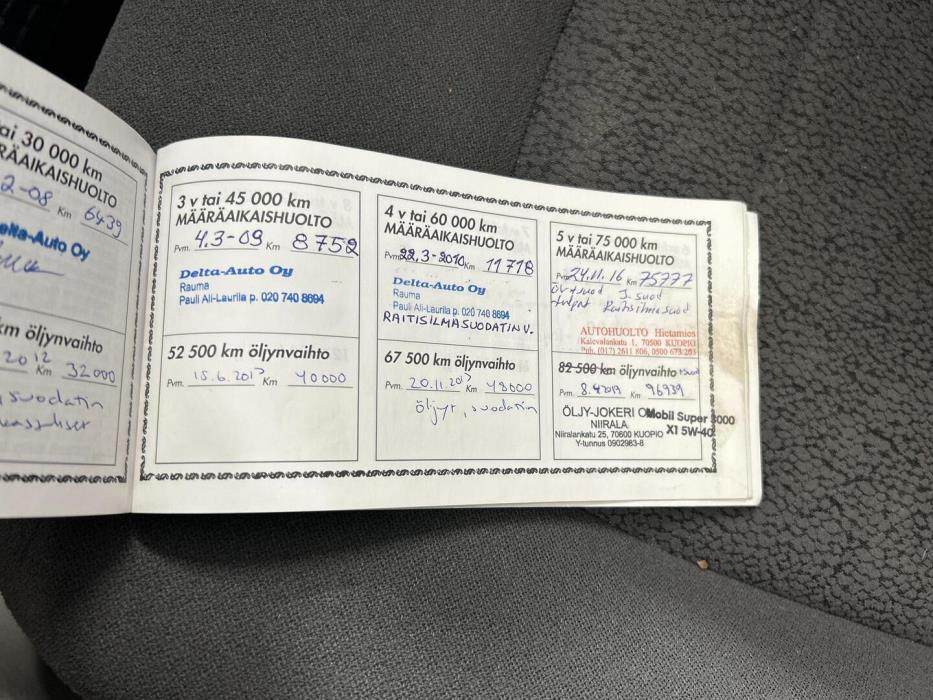 ai 30 000 km
RÄAIKAISHUOLTO
2-08 Km 6439
elta-Auto Oy
km öljynvaihto
2012 Km 32000
suodatin
3 v tai 45 000 km
MÄÄRÄAIKAISHUOLTO
Pvm. 4.3-09 Km 8752
Delta-Auto Oy
Rauma
Pauli Ali-Laurila p. 020 740 8694
52 500 km öljynvaihto
Pvm. 15.6.2013 Km 40000
4 v tai 60 000 km
MÄÄRÄAIKAISHUOLTO
Pvm. 22.3-2010 Km 11718
Delta-Auto Oy
Rauma
Pauli Ali-Laurila p. 020 740 8694
RAITISILMASUODATIN V.
67 500 km öljynvaihto
Pvm. 20.11.2013 Km 48000
öljyt, suodatin
5 v tai 75 000 km
MÄÄRÄAIKAISHUOLTO
Pvm. 24.11.16 Km 75777
suod
suod
AUTOHUOLTO Hietamies
Kalevalankatu 1, 70500 KUOPIO
Puh. (017) 2611 806, 0500 673 203
82 500 km öljynvaihto
Pvm. 8.4.2019 Km 96939
ÖLJY-JOKERI Mobil Super 3000
NIIRALA X1 5W-40
Niiralankatu 25, 70600 KUOPIO
Y-tunnus 0902963-8